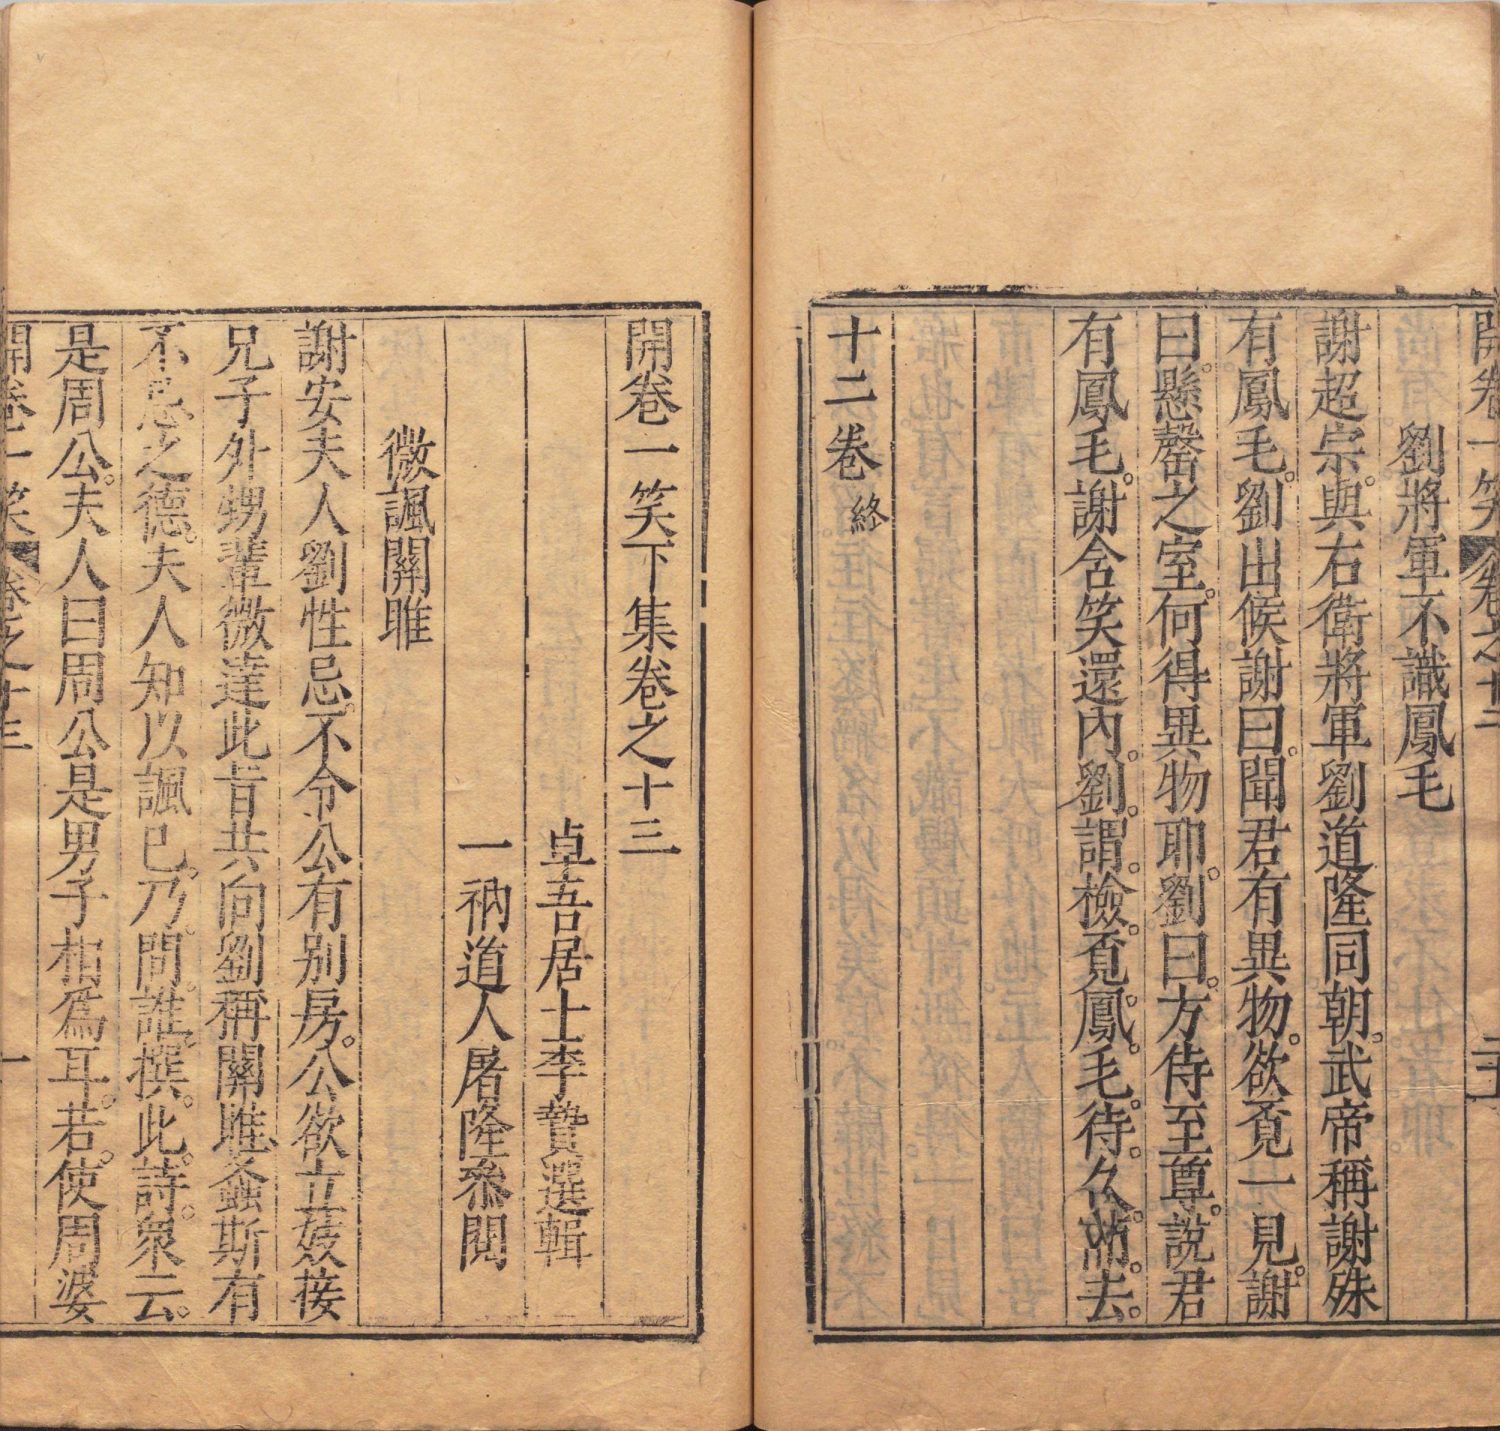 開卷一笑 卷之十二 二十
劉將軍不識鳳毛
謝超宗。與右衛將軍劉道隆同朝。武帝稱謝殊
有鳳毛。劉出候謝曰。聞君有異物。欲覔一見。謝
曰。懸罄之室。何得異物耶。劉曰。方侍至尊。說君
有鳳毛。謝含笑還內。劉謂檢覔鳳毛。待久。
十二卷 終
開卷一笑下集卷之十三
卓吾居士李贄選輯
一衲道人屠隆叅閱
微諷關雎
謝安夫人劉性忌。不令公有別房。公欲立妓接
兄子外甥輩微達此旨共向劉稱關雎螽斯有
不忌之德。夫人知以諷已。乃問。誰撰此詩。衆云。
是周公。夫人曰周公是男子相爲耳。若使周婆
開卷一笑 卷之十三 一